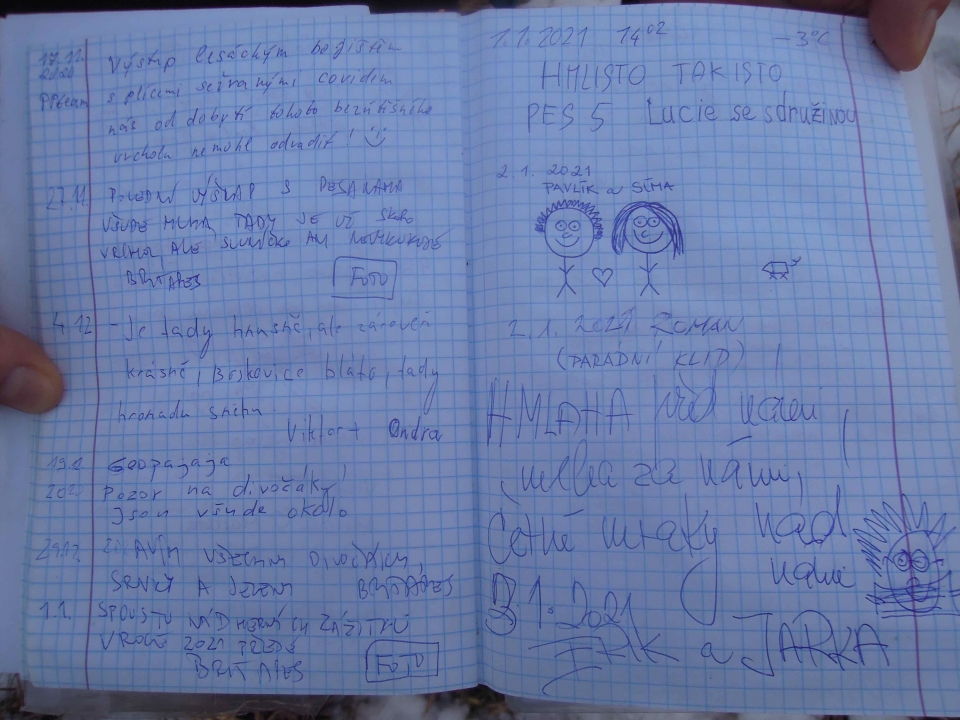 17.11. Výstup lesáckým bořištěm
2020 s plícemi sežranými covidem
nás od dobytí tohoto bezútěšného
vrcholu nemohl odradit!
27.11. VÝŠLAP S
VŠUDE MLHA, TADY JE UŽ SKORO
ALE SLUNÍČKO ANI
BRITAPES FOTO
4.12. - Je tady hnusně, ale zároveň
krásně, Boskovice bláto, tady
hromadu sněhu.
Viktor + Ondra
19.1
Pozor na divočáky,
Jsou všude okolo
29.12. ZDRAVÍM VŠECHNY DIVOČÁKY,
SRNKY A JELENY BRITAPES
1.1. SPOUSTU NÁDHERNÝCH ZÁŽITKŮ
V ROCE 2021 PŘEJE
BRITAPES FOTO
1.1.2021 14 02 -3°C
HMLISTO TAKISTO
PES 5 Lucie se sdružinou
2.1. 2021
PAVLÍK a SÍMA
2.1. 2021 ROMAN
(PARÁDNÍ KLID)
HMLAHA před námi,
mlha za námi,
Četné mraky nad
námi
3.1.2021
ERIK a JARKA